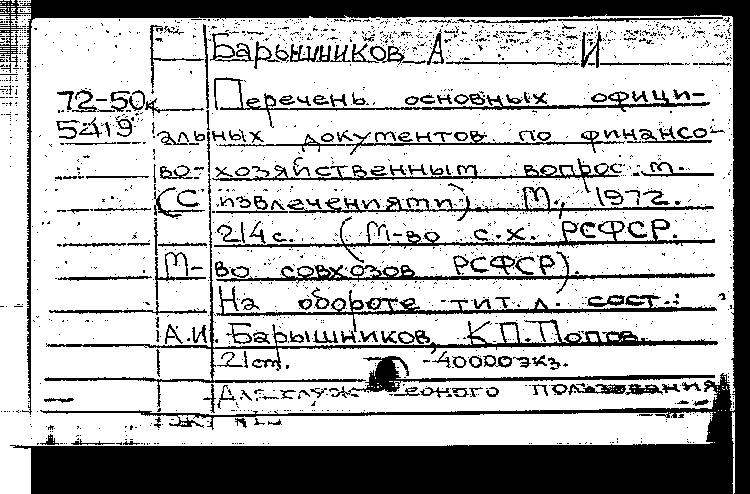 Барышников А И
72-50к Перечень основных офици-
52119 альных документов по финансо-
во-хозяйственным вопрос.м.
(С извлечениями). М., 1972.
214с. (М-во с.х. РСФСР.
М-во совхозов РСФСР).
На обороте тит. л. сост.:
А.И. Барышников, К.П. Попов.
21см. 40000 экз.
Для служебного пользования